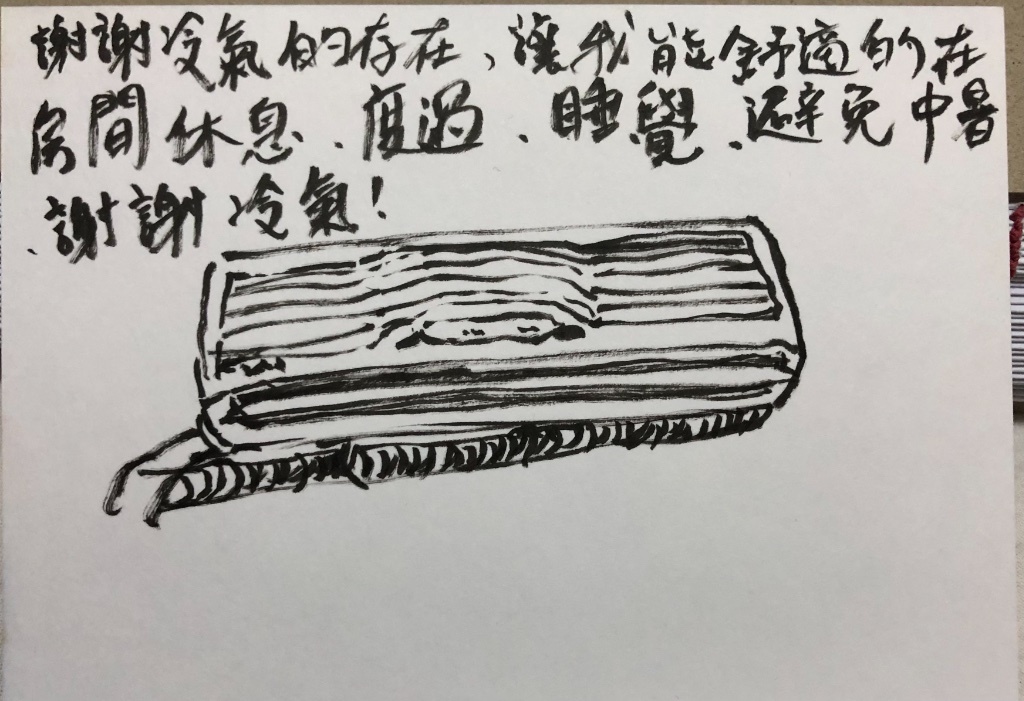 謝謝冷氣的存在、讓我能舒適的在
房間休息、度過、睡覺、避免中暑
、謝謝冷氣!